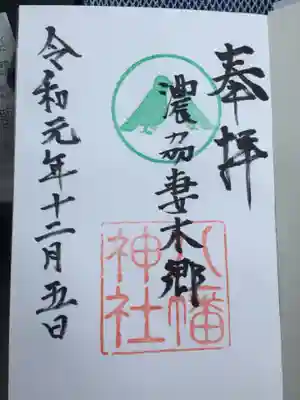 奉拝
濃州妻木郷
八幡神社
令和元年十二月五日